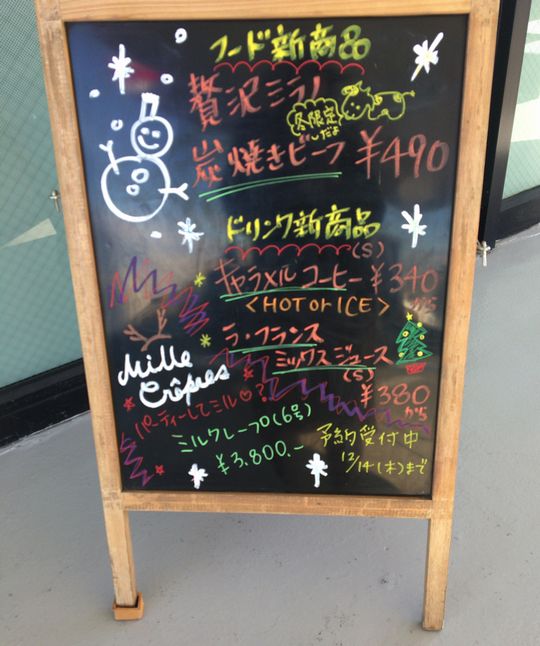 フード新商品
贅沢ミラノ
冬限定
だよ
炭焼きビーフ ¥490
ドリンク新商品
(S)
キャラメルコーヒー ¥340
から
<HOT or ICE>
ラ・フランス
ミックスジュース
(S)
¥380
から
Mille
Crêpes
パーティーしてミル♡?
ミルクレープ(6号)
¥3,800.-
予約受付中
12/14(木)まで